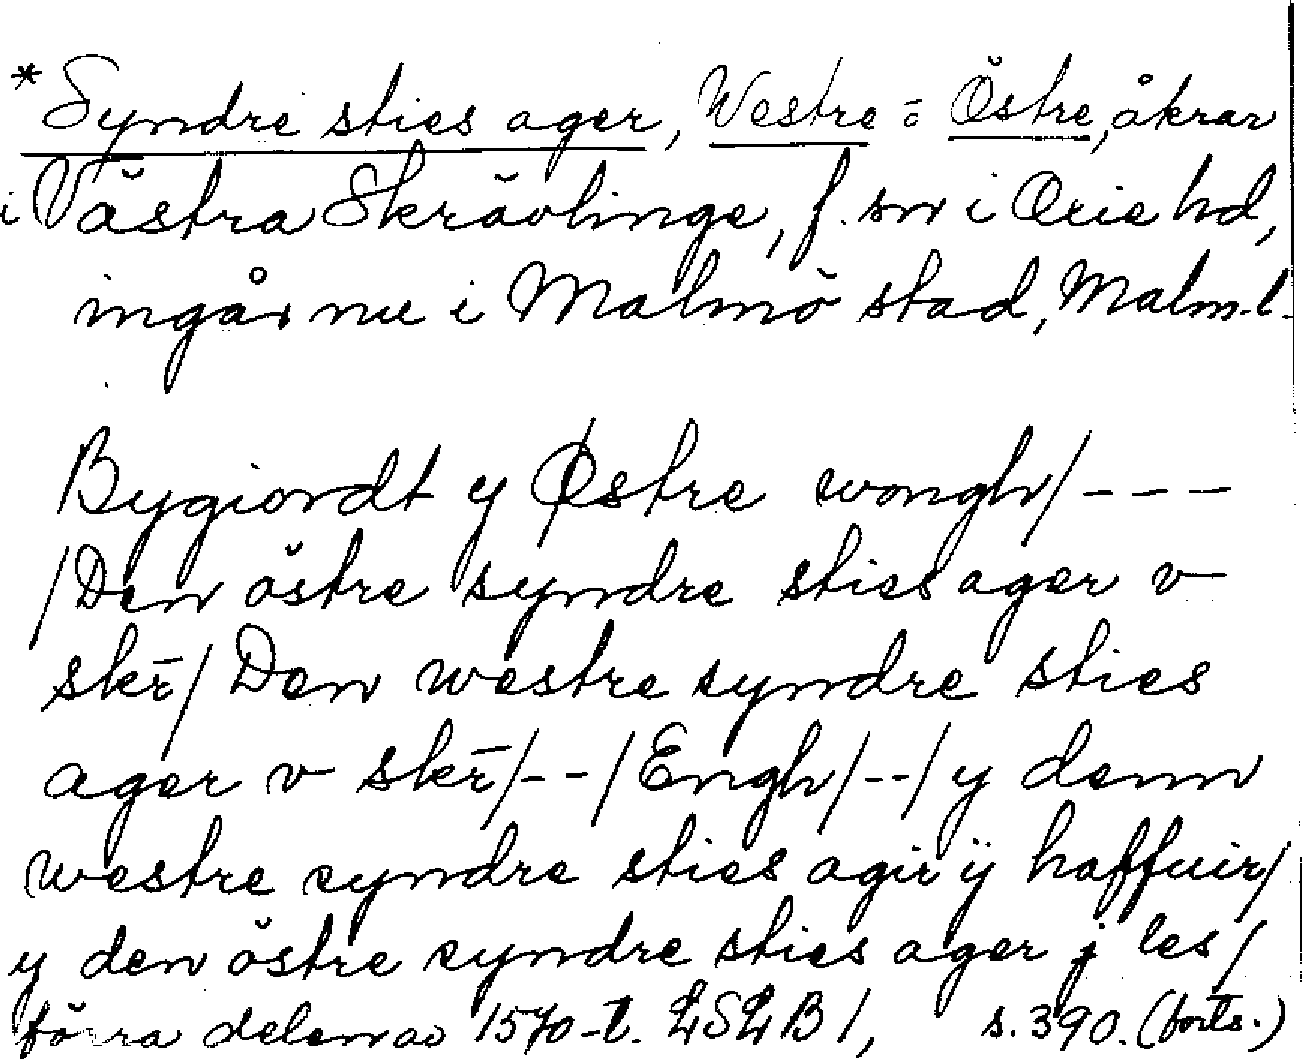 *Syndre sties ager, Westre = Östre, åkrar
i Västra Skrävlinge, f. sn i Oxie hd,
ingår nu i Malmö stad, Malm.l.
Bygiordt y Østre wongh/---
/Den östre syndre sties ager v
skē/ Den westre syndre sties
ager v skē/--/Engh/--/ y denn
westre syndre sties agir ÿ haffuir/
y den östre syndre sties ager j les/
förra delen av 1570-t. LSLB 1, s. 390. (forts.)